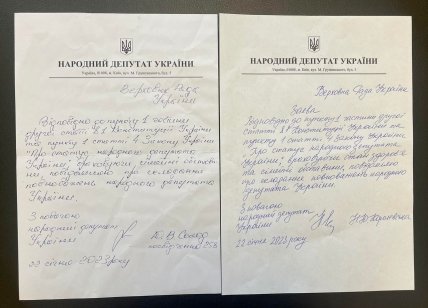 НАРОДНИЙ ДЕПУТАТ УКРАЇНИ
Україна, 01008, м. Київ, вул. М. Грушевського, буд. 5
Верховна Рада
України
Відповідно до пункту 1 частини
другої статті 81 Конституції України
та пункту 1 статті 4 Закону України
"Про статус народного депутата
України",
повідомляю про складання
повноважень народного депутата
України.
З повагою
народний депутат
України
посвідчення 258
22 січня 2023 року
НАРОДНИЙ ДЕПУТАТ УКРАЇНИ
Україна, 01008, м. Київ, вул. М. Грушевського, буд. 5
Верховна Рада України
Заява
Відповідно до пункту 1 частини другої
статті 81 Конституції України та
пункту 1 статті 4 Закону України
"Про статус народного депутата
України", враховуючи стан здоров'я
та сімейні обставини, повідомляю
про складання повноважень народного
депутата України.
З повагою
народний депутат
України
22 січня 2023 року